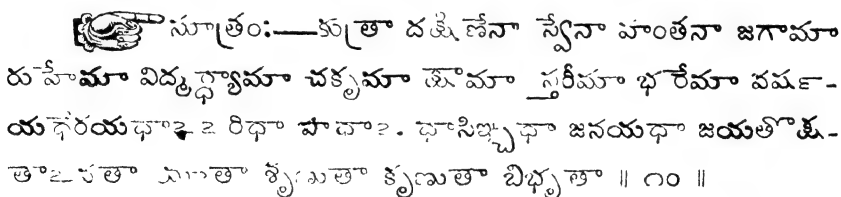 సూత్రం:—కుత్రా దక్షిణేనా స్వేనా హంతనా జగామా
రుహేమా విద్మధ్ధ్యామా చకృమా క్షామా స్తరీమా భరేమా వర్ష-
యథేరయథాఽఽ రిథా పాథాఽ. థాసిఞ్చథా జనయథా జయతోక్షి-
తాఽ తా శృణుతా కృణుతా బిభృతా ॥ ౧౦ ॥